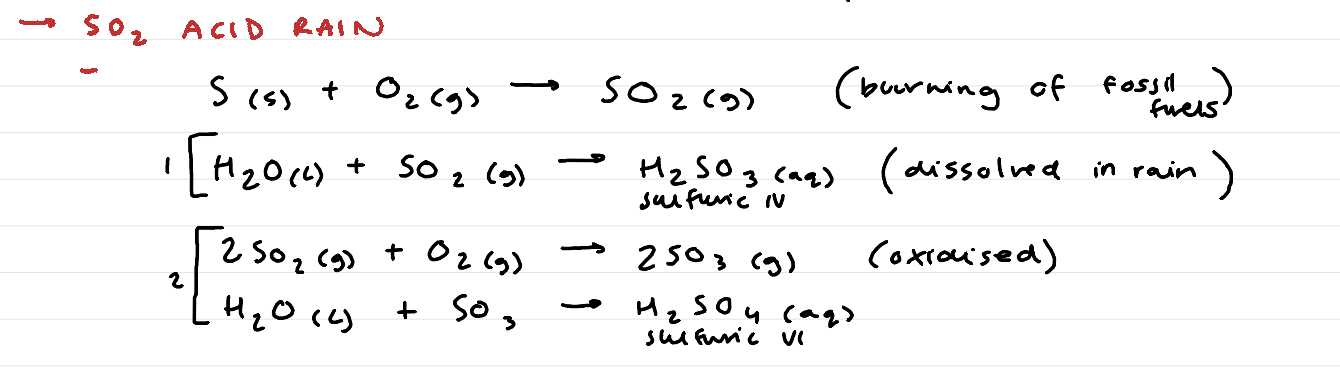 → SO₂ ACID RAIN
-
S (s) + O₂ (g) → SO₂ (g) (burning of fossil fuels)
1 [ H₂O (l) + SO₂ (g) → H₂SO₃ (aq) (dissolved in rain)
sulfuric IV
2 [ 2 SO₂ (g) + O₂ (g) → 2 SO₃ (g) (oxidised)
H₂O (l) + SO₃ → H₂SO₄ (aq)
sulfuric VI